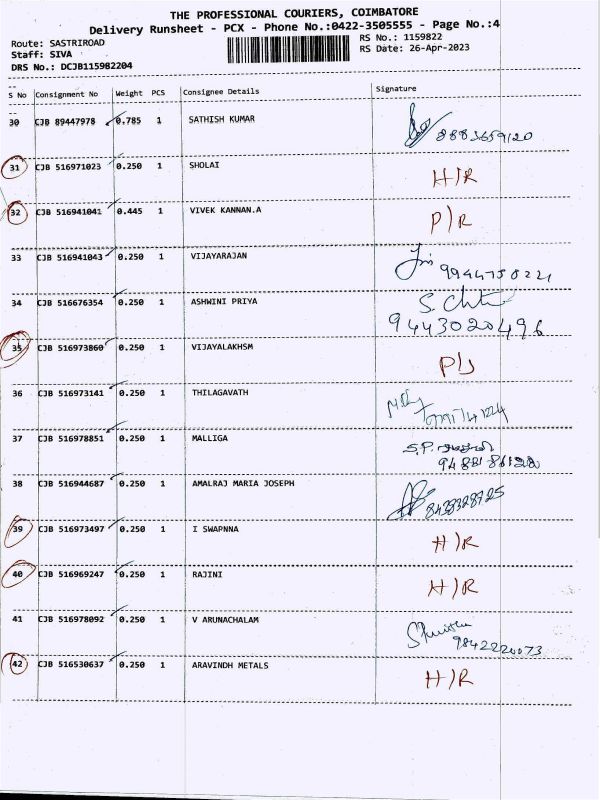 THE PROFESSIONAL COURIERS, COIMBATORE
Delivery Runsheet - PCX - Phone No.:0422-3505555 - Page No.:4
Route: SASTRIROAD RS No.: 1159822
Staff: SIVA RS Date: 26-Apr-2023
DRS No.: DCJB115982204
S No Consignment No Weight PCS Consignee Details Signature
30 CJB 89447978 0.785 1 SATHISH KUMAR 8883659120
31 CJB 516971023 0.250 1 SHOLAI H/R
32 CJB 516941041 0.445 1 VIVEK KANNAN.A P/R
33 CJB 516941043 0.250 1 VIJAYARAJAN 9944758221
34 CJB 516676354 0.250 1 ASHWINI PRIYA
9443020496
35 CJB 516973860 0.250 1 VIJAYALAKHSM
36 CJB 516973141 0.250 1 THILAGAVATH
37 CJB 516978851 0.250 1 MALLIGA S.P.
38 CJB 516944687 0.250 1 AMALRAJ MARIA JOSEPH 8438328925
39 CJB 516973497 0.250 1 I SWAPNNA H/R
40 CJB 516969247 0.250 1 RAJINI H/R
41 CJB 516978092 0.250 1 V ARUNACHALAM
9842220073
42 CJB 516530637 0.250 1 ARAVINDH METALS H/R